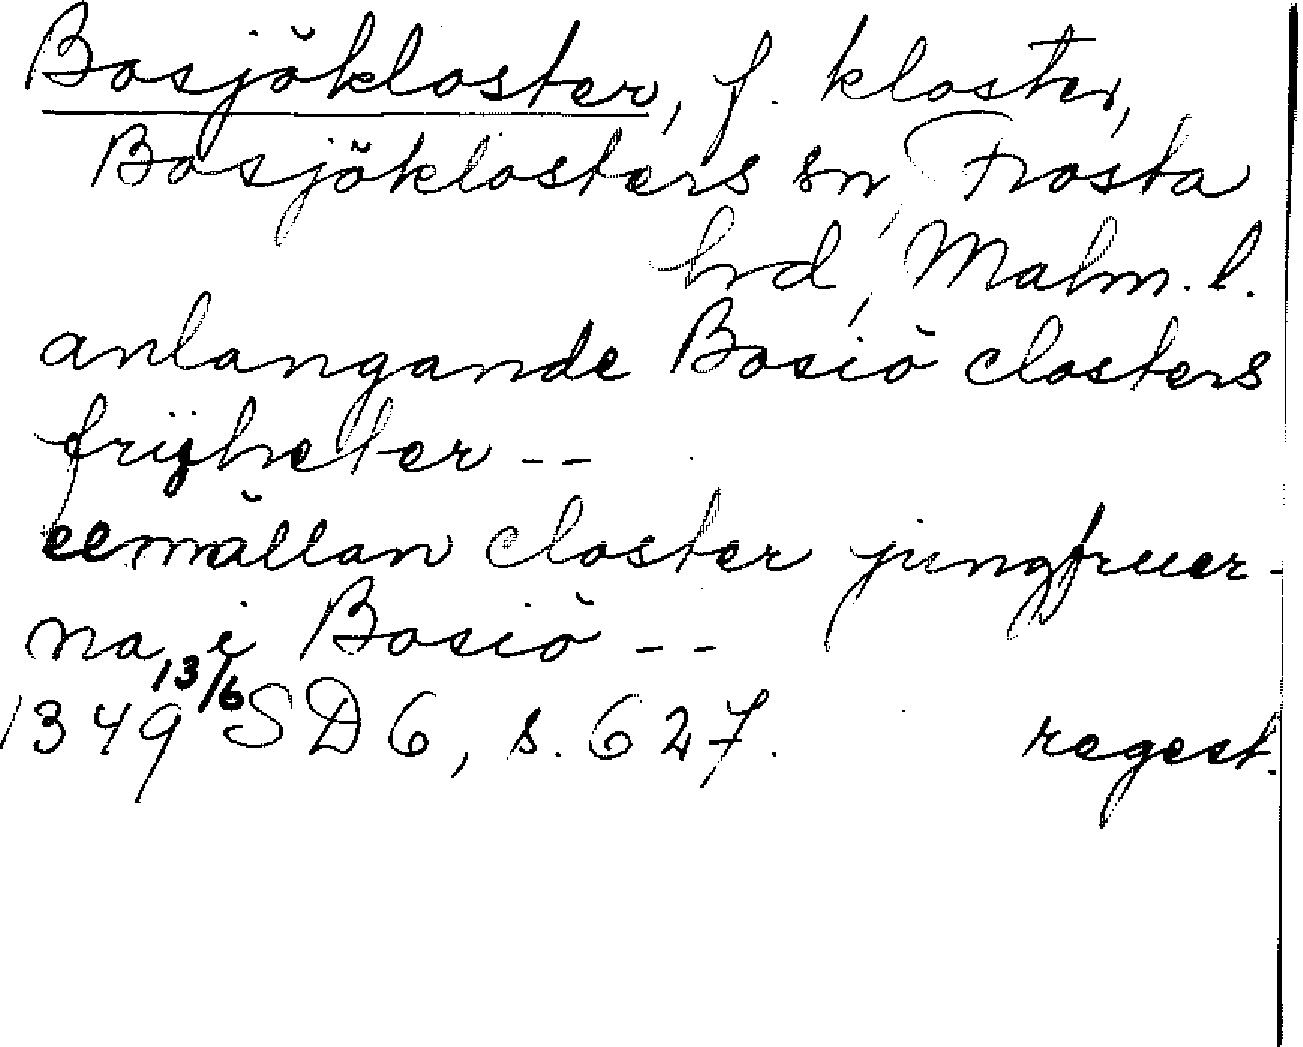 Bosjökloster, f. kloster,
Bosjöklosters sn, Frosta
hd, Malm. l.
anlangande Bosiö closters
frijheter --
eemällan closter jungfruer-
na i Bosiö --
1349 13/6 SD 6, s. 627. regest.